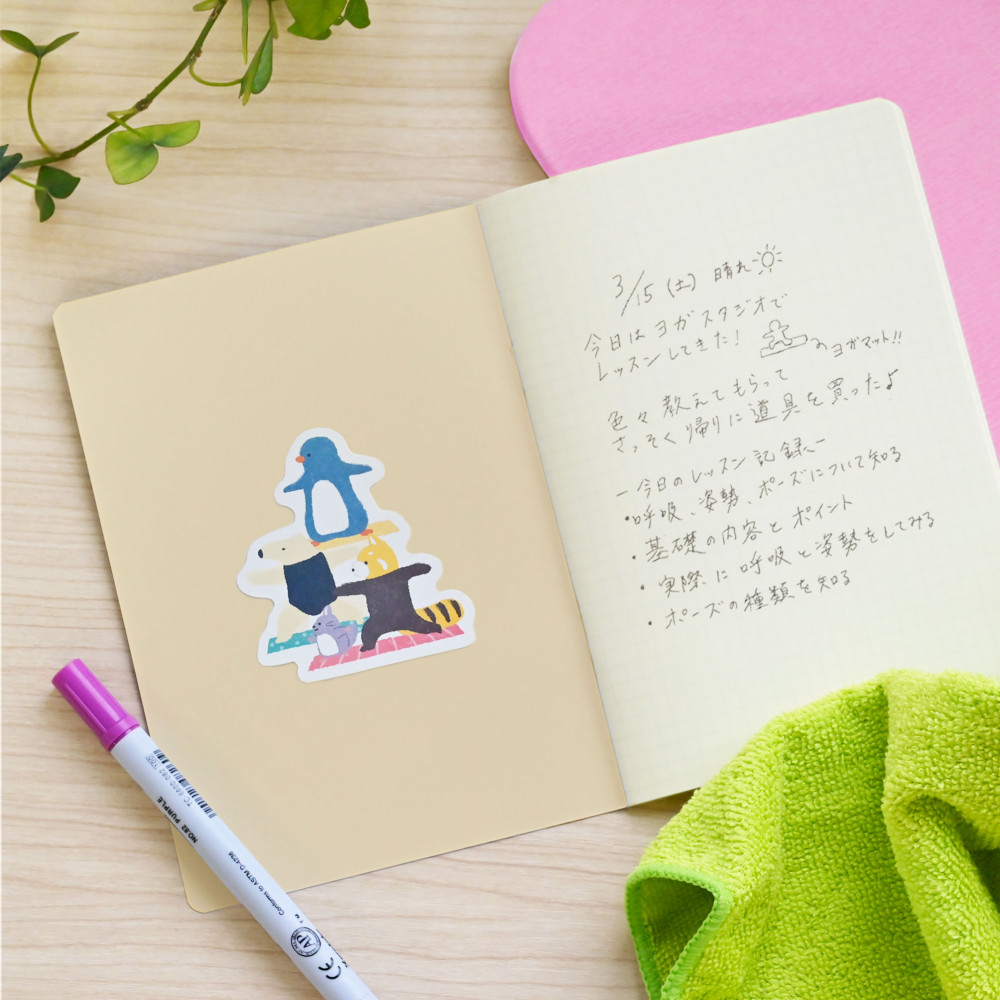 3/15 (土) 晴れ
今日はヨガスタジオで
レッスンしてきた!
ヨガマット!!
色々教えてもらって
さっそく帰りに道具を買ったよ
ー今日のレッスン記録ー
・呼吸、姿勢、ポーズについて知る
・基礎の内容とポイント
・実際に呼吸と姿勢をしてみる
・ポーズの種類を知る
NO.82 PURPLE
Conforms to ASTM D-4236
AP
CE